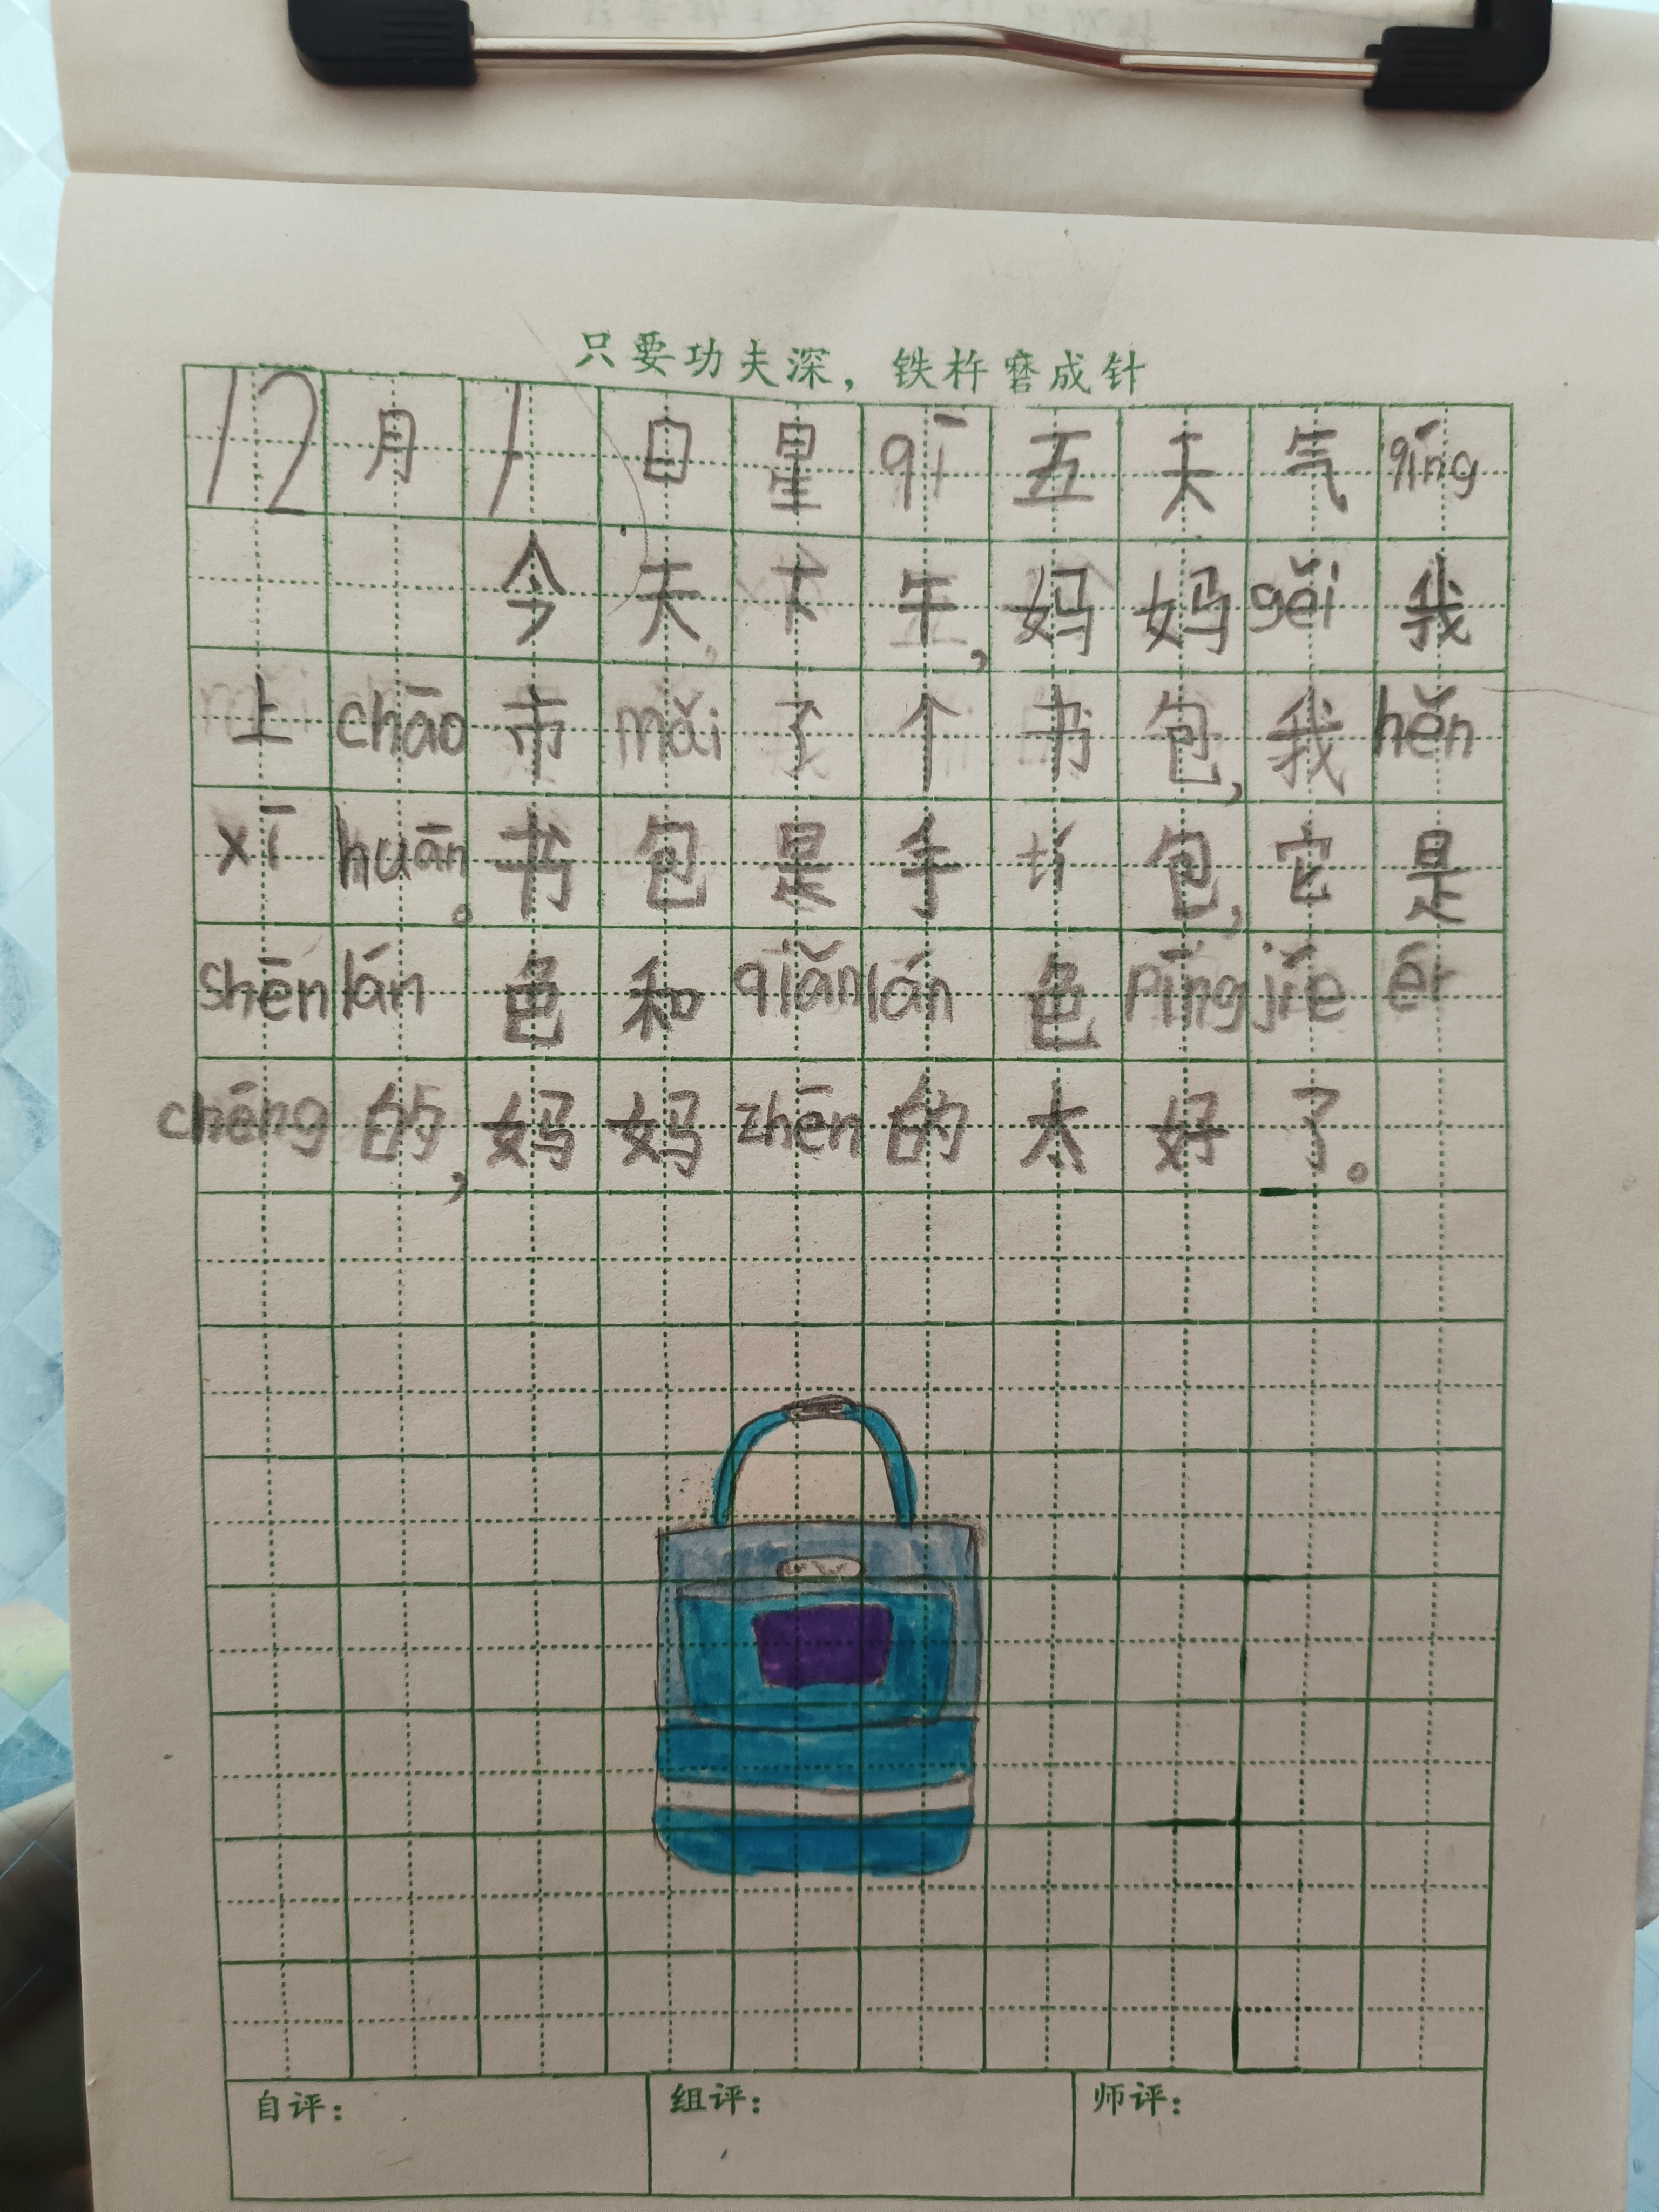 只要功夫深，铁杵磨成针
12月1日星qī五天气qíng
今天下午，妈妈gěi我
上chāo市mǎi了个书包，我hěn
xǐ huān。书包是手包，它是
shēn lán色和qiǎn lán色pīng jiē ér
chéng的，妈妈zhēn的太好了。
自评： 组评： 师评：